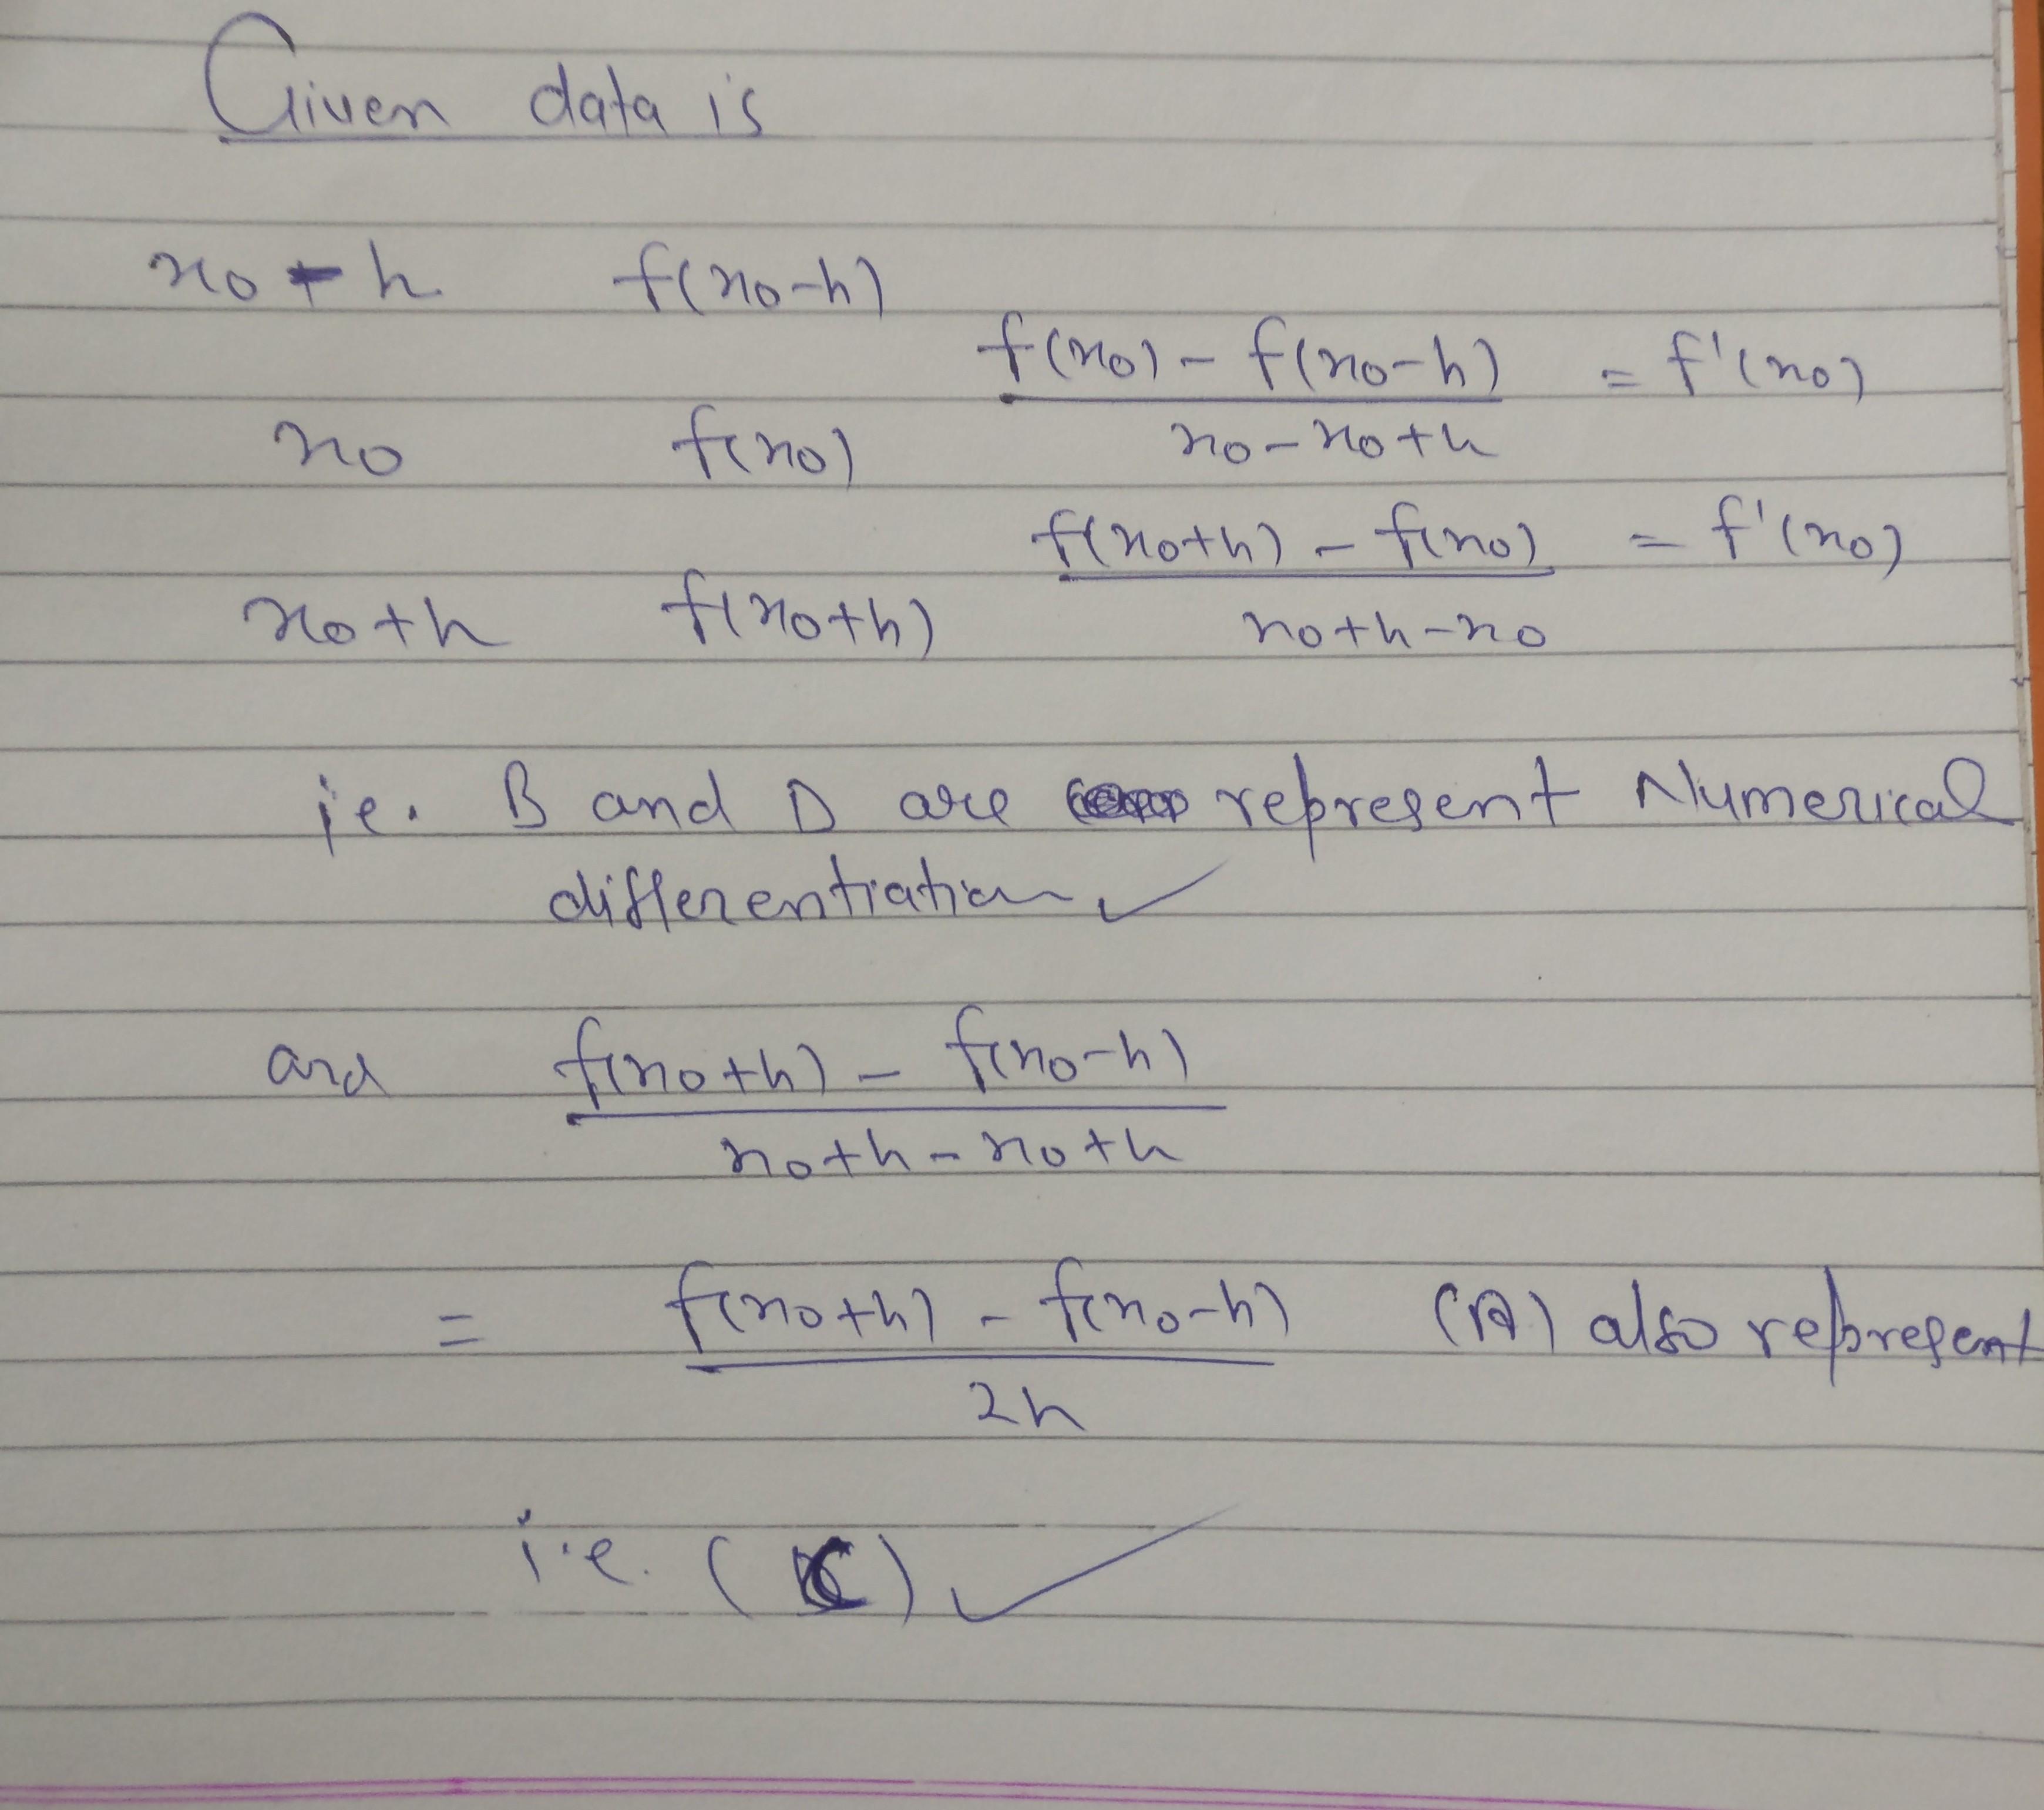 Given data is
x0 - h f(x0-h)
f(x0) - f(x0-h) = f'(x0)
x0 f(x0) x0-x0+h
f(x0+h) - f(x0) = f'(x0)
x0+h f(x0+h) x0+h-x0
i.e. B and D are represent Numerical
differentiation ✓
and f(x0+h) - f(x0-h)
x0+h-x0+h
= f(x0+h) - f(x0-h) (A) also represent
2h
i.e. (C) ✓